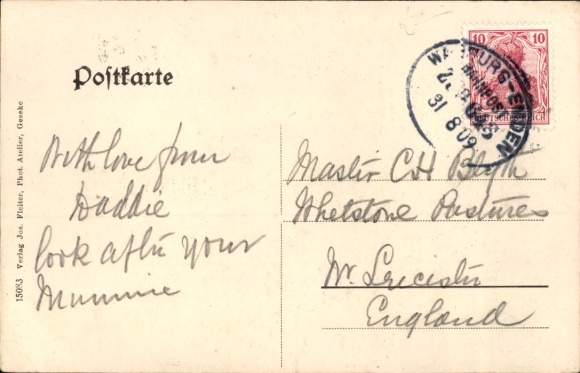 Postkarte
With love from
Daddie
look after your
Mummie
Master C H Blyth
Whetstone Pastures
Nr Leicester
England
10
10
DEUTSCHES REICH
BAHNPOST
31 8 09
15083 Verlag Jos. Floiter, Phot. Atelier, Geseke